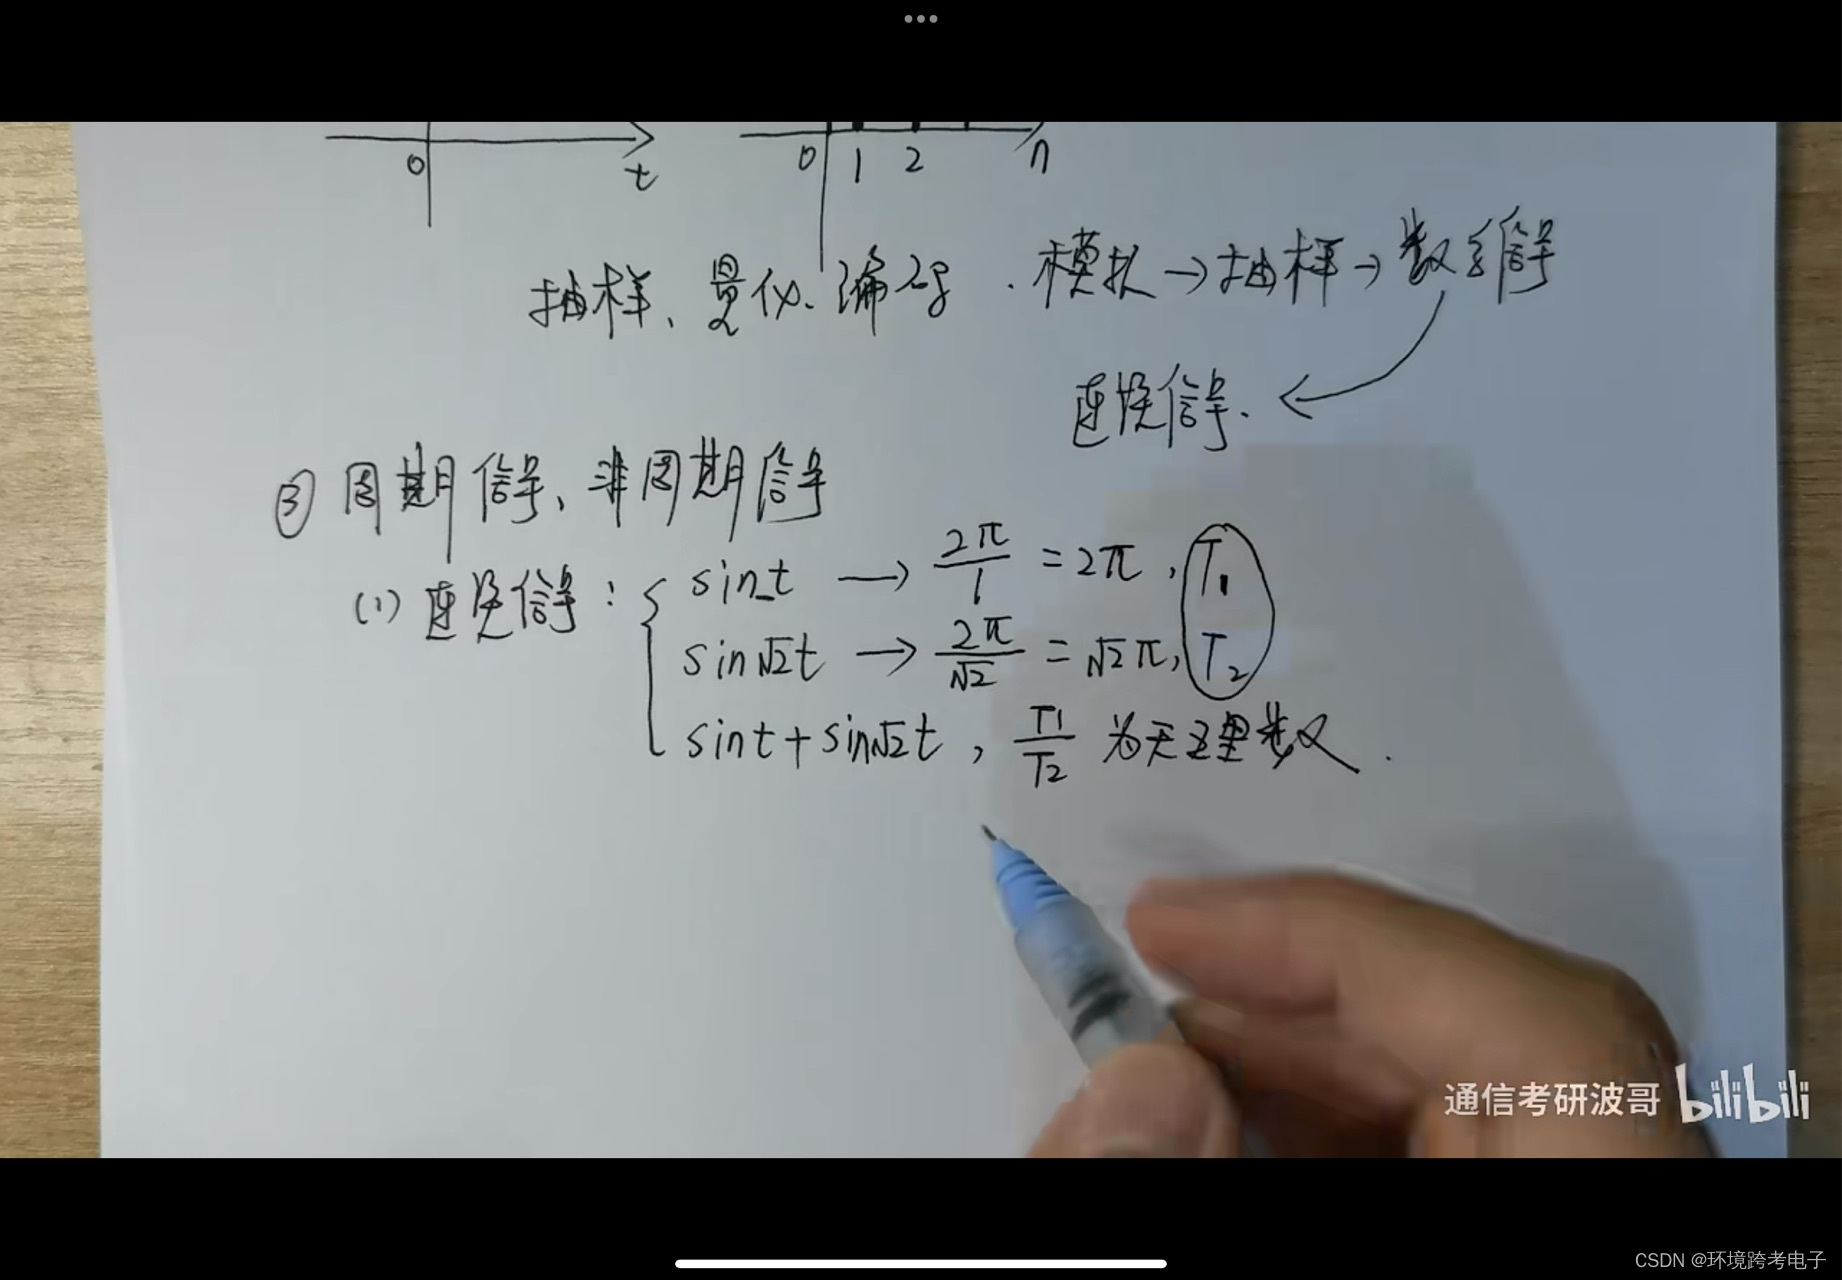 0 t 0 1 2 n
抽样、量化、编码 . 模拟→抽样→数字信号
连续信号.
③ 周期信号、非周期信号
(1) 连续信号: { sint → 2π/1 = 2π, T₁
sin√2t → 2π/√2 = √2π, T₂
sint+sin√2t, T1/T2 为无理数.
通信考研波哥 bilibili
CSDN @环境跨考电子